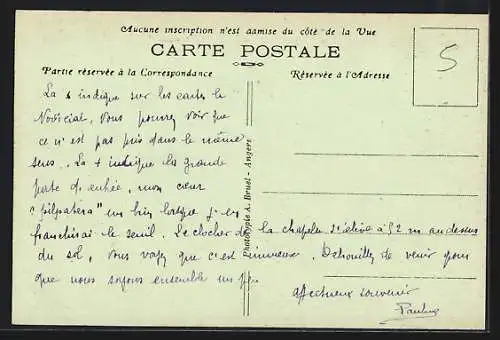 Aucune inscription n'est admise du côté de la Vue
CARTE POSTALE
Partie réservée à la Correspondance
Réservée à l'Adresse
5
La + indique sur les cartes le
Noviciat, vous pourrez voir que
ce n'est pas pris dans le même
sens. La + indique la grande
porte d'entrée, mon cœur
"pilpatera" un bien lorsque j'en
franchirai le seuil. Le clocher de la chapelle s'élève à 52 m au dessus
du sol, vous voyez que c'est immense. Débouillez de venir pour
que nous soyons ensemble un peu
affectueux souvenir
Pauline
Phototypie A. Bruel - Angers